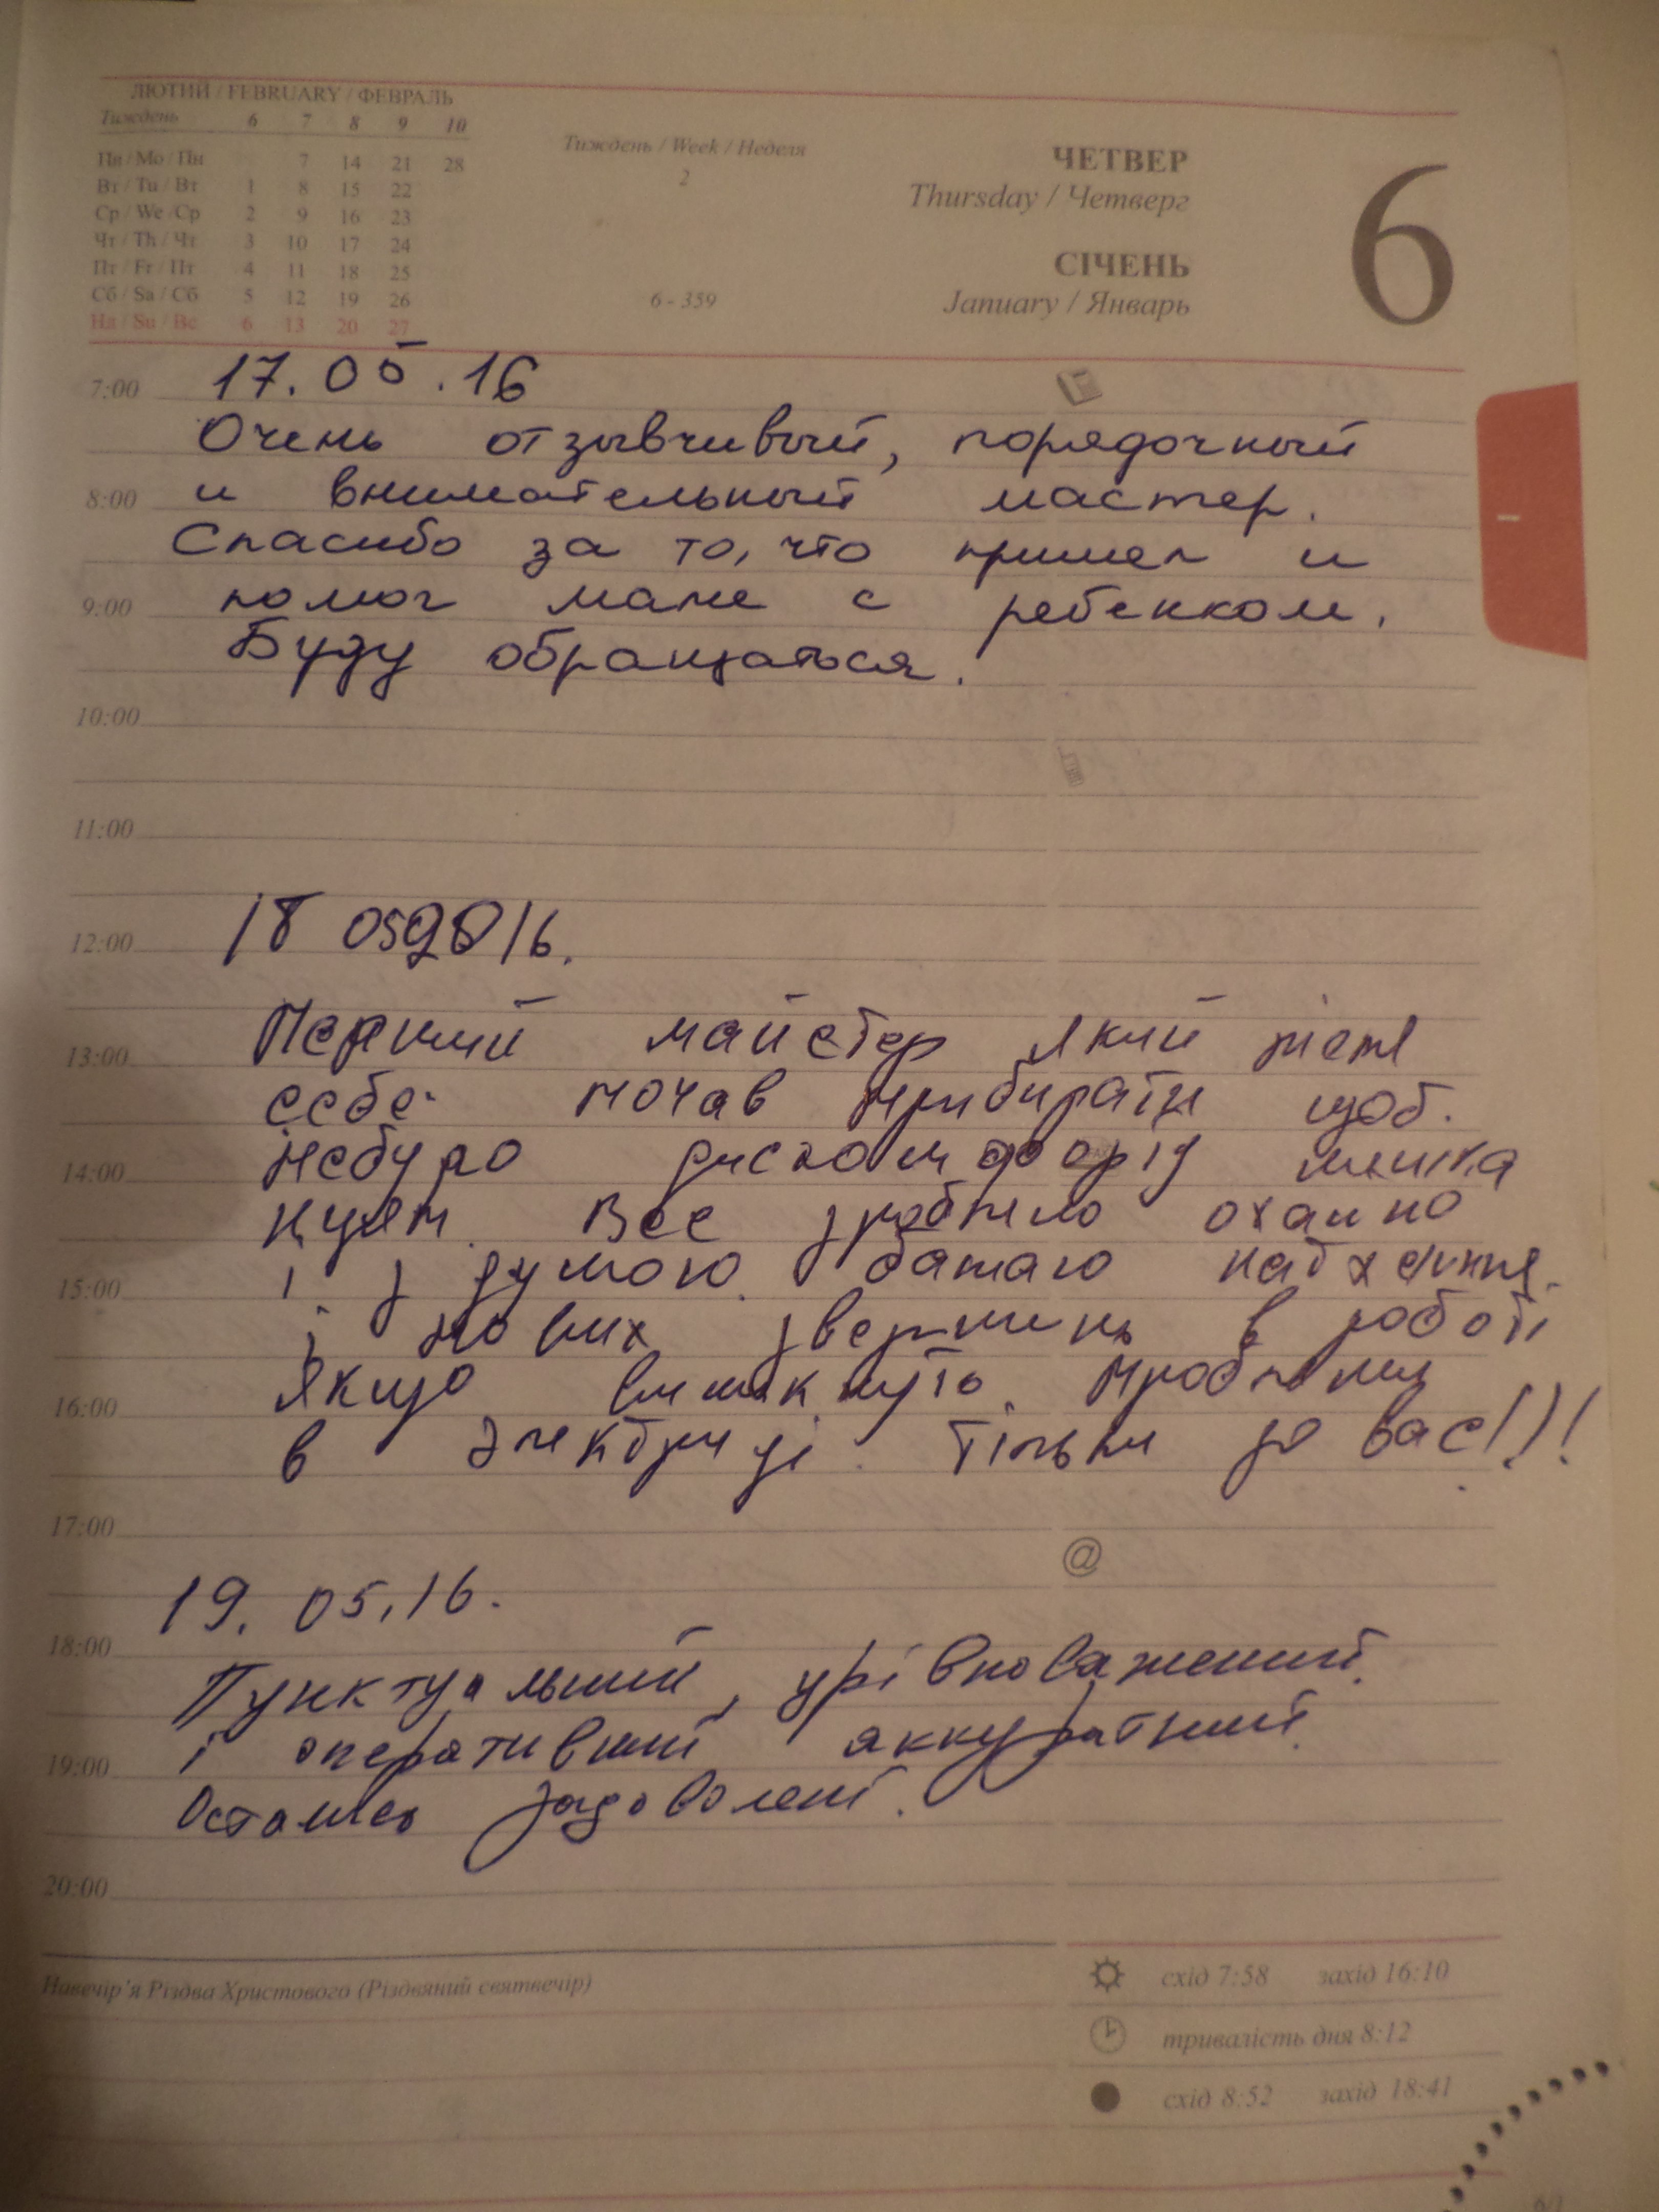 ЛЮТИЙ / FEBRUARY / ФЕВРАЛЬ
Тиждень 6 7 8 9 10
Пн / Mo / Пн 7 14 21 28
Вт / Tu / Вт 1 8 15 22
Ср / We / Ср 2 9 16 23
Чт / Th / Чт 3 10 17 24
Пт / Fr / Пт 4 11 18 25
Сб / Sa / Сб 5 12 19 26
Нд / Su / Вс 6 13 20 27
Тиждень / Week / Неделя
2
6 - 359
ЧЕТВЕР
Thursday / Четверг
СІЧЕНЬ
January / Январь
6
7:00 17.05.16
Очень отзывчивый, порядочный
8:00 и внимательный мастер.
Спасибо за то, что пришел и
9:00 помог маме с ребенком.
Буду обращаться.
10:00
11:00
12:00 18 05 2016.
13:00 Перший майстер який після
себе почав прибирати щоб.
14:00 небуло
Все зроблено охайно
15:00 і з думою бажаю натхнення.
і нових звершень в роботі
16:00 Якщо виникнуть проблеми
в електриці. Тільки до вас!!!
17:00
@
19. 05.16.
18:00
Пунктуальний, урівноважений
19:00 і оперативний аккуратний.
Остались задоволені.
20:00
Навечір'я Різдва Христового (Різдвяний святвечір)
схід 7:58 захід 16:10
тривалість дня 8:12
схід 8:52 захід 18:41